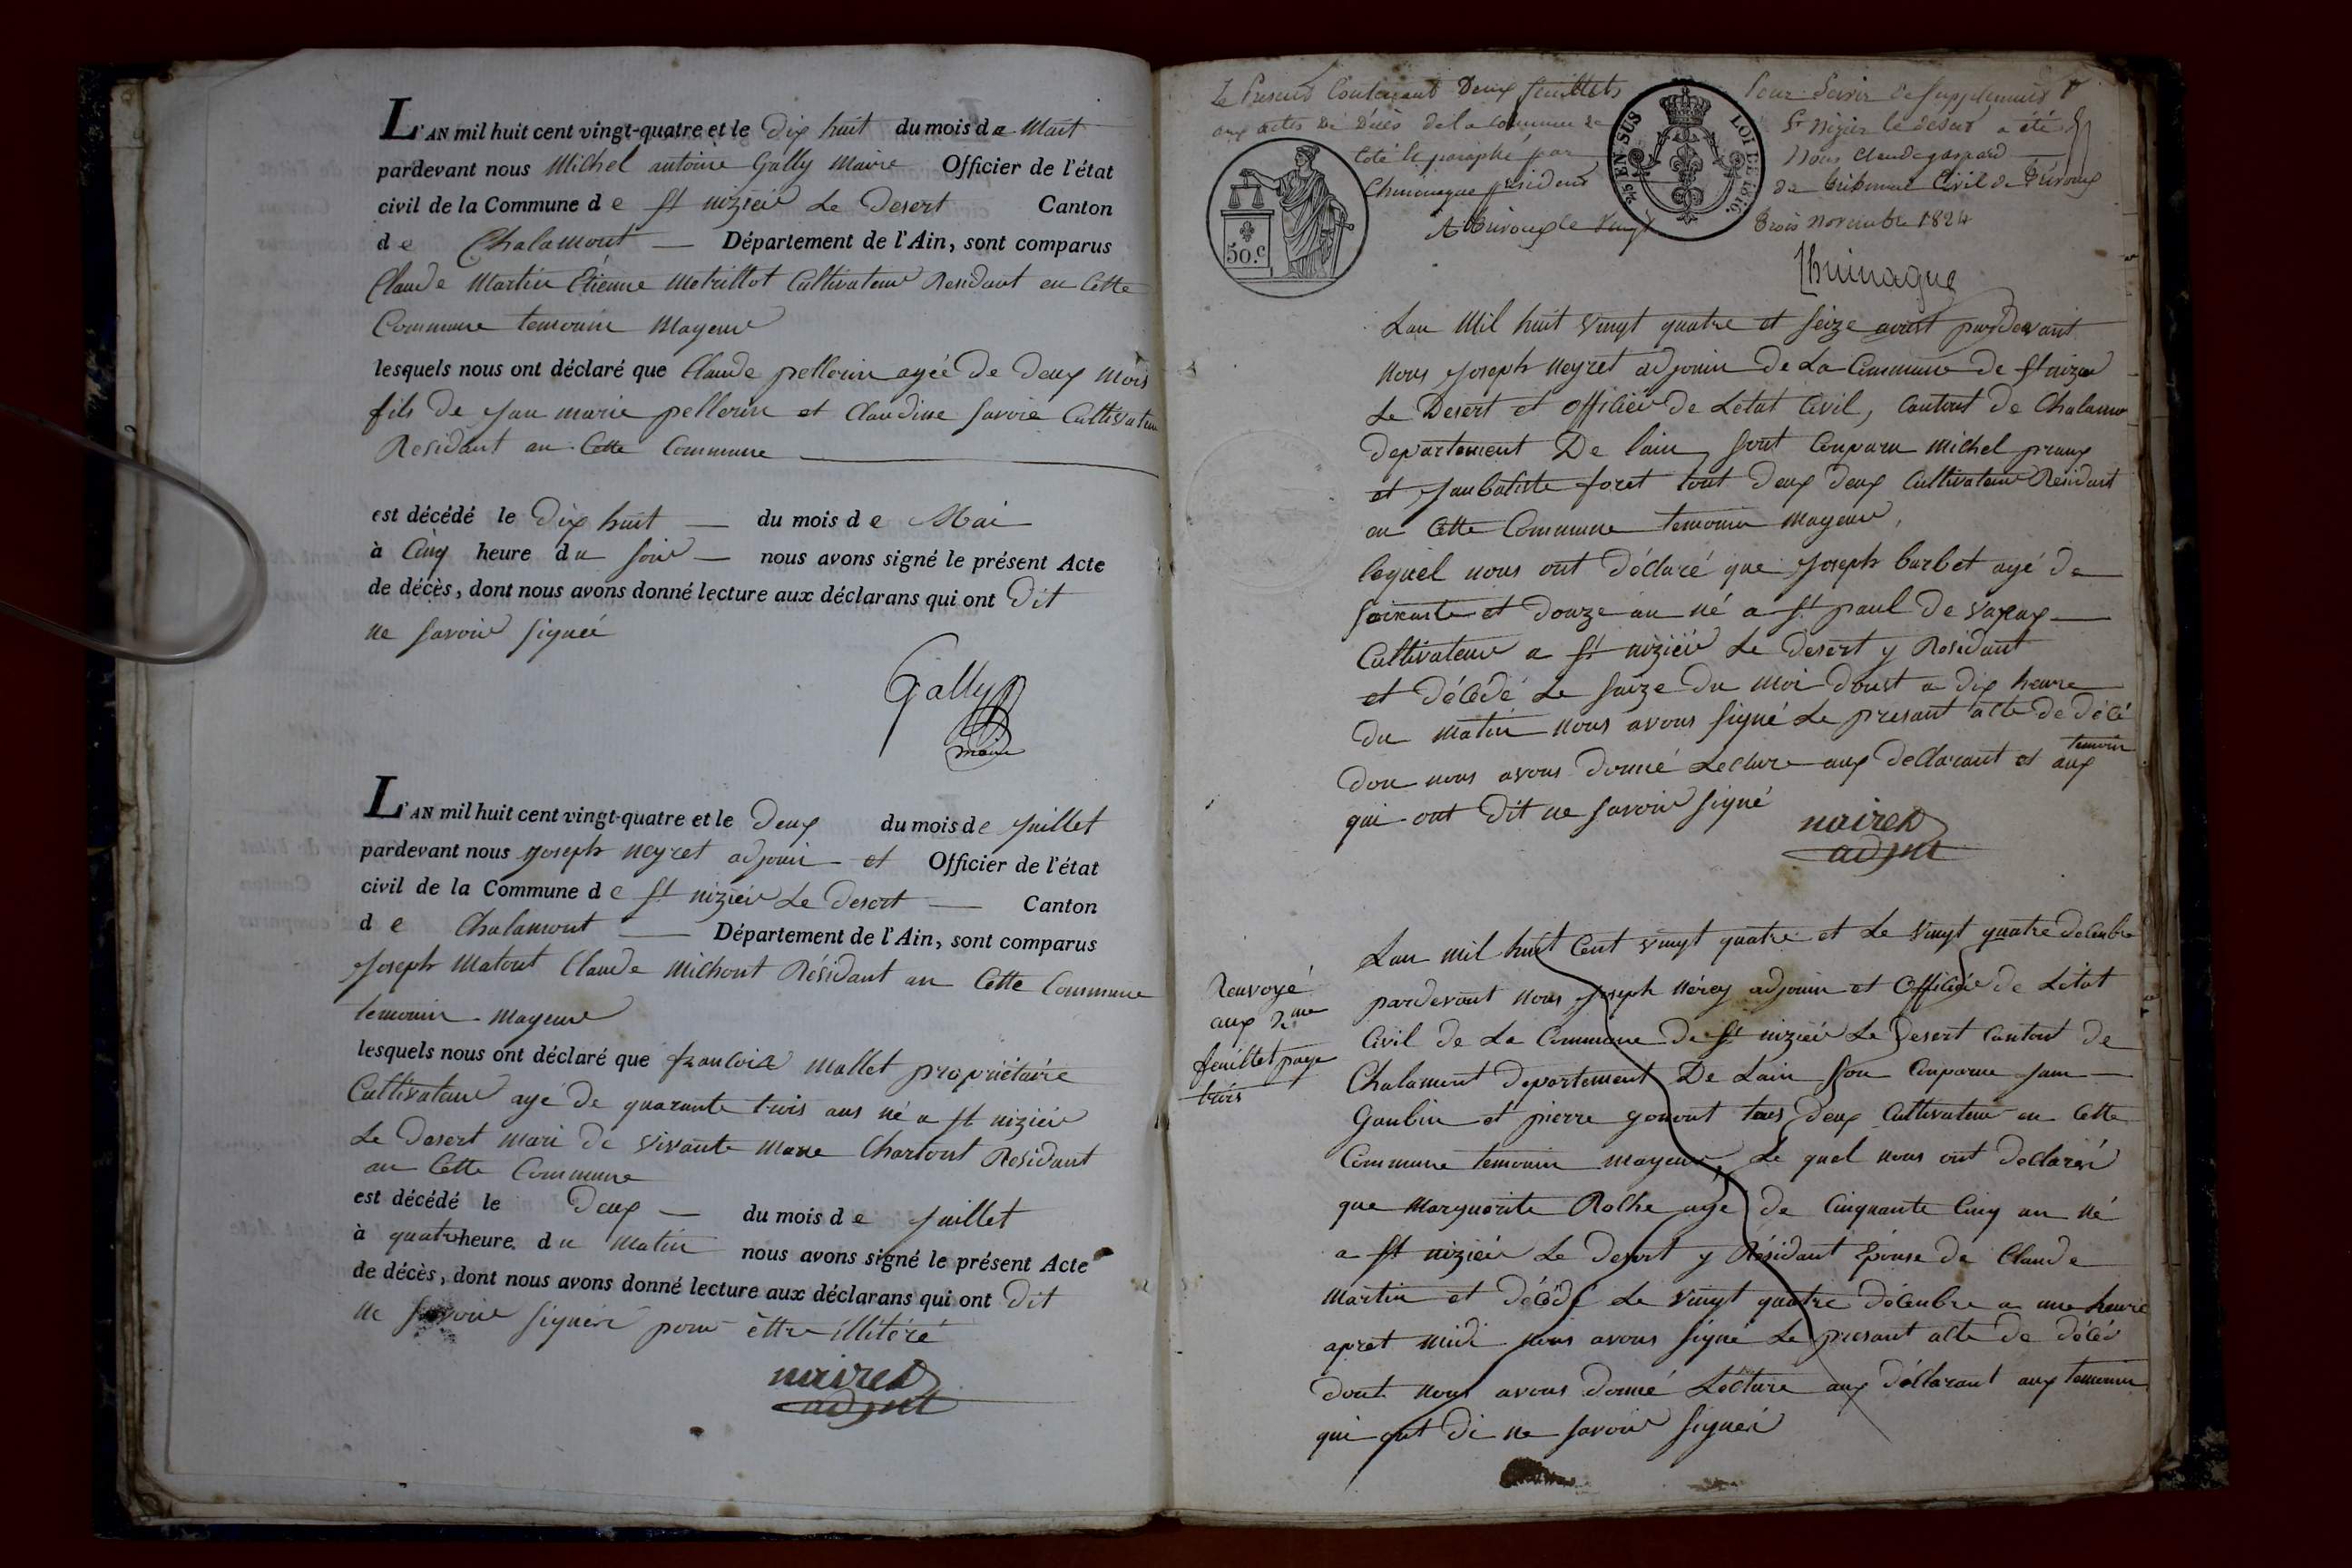 L'AN mil huit cent vingt-quatre et le dix huit du mois de Mait
pardevant nous Michel antoine Gally Maire Officier de l'état
civil de la Commune de St niziér Le Desert Canton
de Chalamont Département de l'Ain, sont comparus
Claude Martin Etienne Metrillot Cultivateur Residant en Cette
Commune temouin Mayeur
lesquels nous ont déclaré que Claude pellerin ageé de deux mois
fils de Jan marie pellerin et Claudine Savoie Cultivateur
Residant an Cette Commune
est décédé le dix huit du mois de Mai
à Cinq heure du soir nous avons signé le présent Acte
de décès, dont nous avons donné lecture aux déclarans qui ont dit
ne savoir signeé
Gally
maire
L'AN mil huit cent vingt-quatre et le deux du mois de Juillet
pardevant nous joseph neyret adjouin et Officier de l'état
civil de la Commune de St niziér Le desert Canton
de Chalamont Département de l'Ain, sont comparus
Joseph Matout Claude Michont Résidant an Cette Commune
temouin Mayeur
lesquels nous ont déclaré que francois Mallet propriétaire
Cultivateur agé de quarante trois ans né a St niziér
Le desert mari de vivante Marie Chartont Residant
an Cette Commune
est décédé le deux du mois de Juillet
à quatre heure du Matin nous avons signé le présent Acte
de décès, dont nous avons donné lecture aux déclarans qui ont dit
ne savoir signér pour ettre illitéré
neiret
adjoint
Le Present Contenant Deux feuillets Pour Servir de Supplement
aux actes de Décès de la Commune de St Nizier le desert a été
Coté & paraphé par Nous Claude gaspard
président du tribunal Civil de Trévoux
A Trévoux le vingt trois Novembre 1824
2/5 EN SUS LOI DE 1816.
50.c
Lan Mil huit vingt quatre et seize aoust pardevant
nous Joseph Neyret adjouin de La Commune de St nizier
Le Desert et officiér de Létat Civil, Cantont de Chalamon
departement De lain sont Conparu Michel praux
et Jan batiste foret tout deux deux Cultivateur Residant
an Cette Commune temouin Mayeur,
lequel nous ont déclaré que Joseph barbet agé de
soixante et douze an né a St paul de varax
Cultivateur a St niziér Le desert y Residant
et décédé Le saize du moi doust a dix heure
du matin nous avons signé Le presant acte de décé
don nous avons donné Lecture aux declarant et aux temoin
qui ont dit ne savoir signé
neiret
adjoint
Lan mil huit Cent vingt quatre et Le vingt quatre decenbre
pardevant nous Joseph Nérey adjouin et Officiér de Létat
Civil de La Commune de St niziér Le desert Cantont de
Chalamont departement De Lain son Conparu Jan
Gaubin et pierre gonont tous deux Cultivateur an Cette
Commune temouin mayeur, Le quel nous ont declarér
que Marguerite Rolhe agé de Cinquante Cinq an né
a St niziér Le desert y Résidant Epouse de Claude
Martin et décédé Le vingt quatre décenbre a une heure
apret midi nous avons signé Le presant acte de décés
dont nous avons donné Lecture aux déclarant aux temouin
qui ont di ne savoir signér
Renvoyé
aux 2me
feuillet page
trois